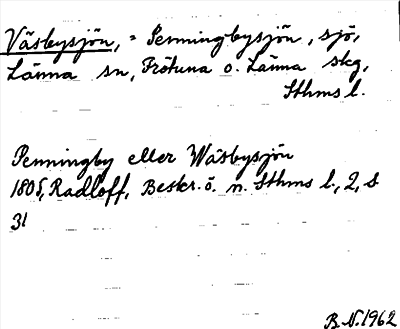 Väsbysjön, = Penningbysjön, sjö,
Länna sn, Frötuna o. Länna skg,
Sthms l.
Penningby eller Wäsbysjön
1805, Radloff, Beskr. ö. n. Sthms l., 2, s
31
B.N. 1962